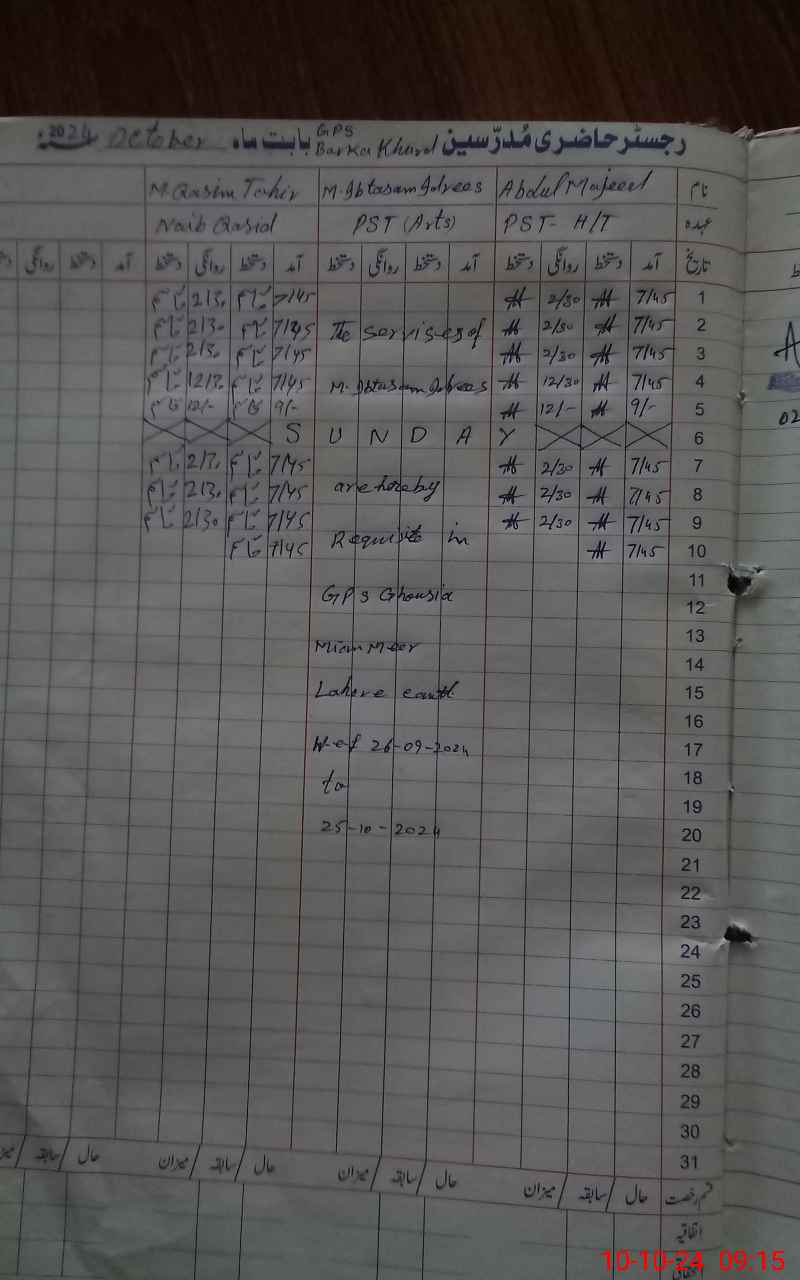 رجسٹر حاضری مُدرّسین GPS Barka Khurd بابت ماہ October 2024
نام Abdul Majeed M. Ibtasam Idrees M. Qasim Tahir
عہدہ PST- H/T PST (Arts) Naib Qasid
تاریخ آمد دستخط روانگی دستخط آمد دستخط روانگی دستخط آمد دستخط روانگی دستخط آمد دستخط روانگی
1 7/45 2/30 7/45 2/30
2 7/45 2/30 The servises of 7/45 2/30
3 7/45 2/30 7/45 2/30
4 7/45 12/30 M. Ibtasam Idrees 7/45 12/30
5 9/- 12/- 9/- 12/-
6 S U N D A Y
7 7/45 2/30 7/45 2/30
8 7/45 2/30 are hereby 7/45 2/30
9 7/45 2/30 7/45 2/30
10 7/45 Requisite in 7/45
11
12 GPS Ghousia
13
14 Mian Meer
15 Lahore cantt
16
17 W-e-f 26-09-2024
18 to
19
20 25-10-2024
21
22
23
24
25
26
27
28
29
30
31
قسم رخصت حال سابقہ میزان حال سابقہ میزان حال سابقہ میزان حال سابقہ
اتفاقیہ
10-10-24 09:15